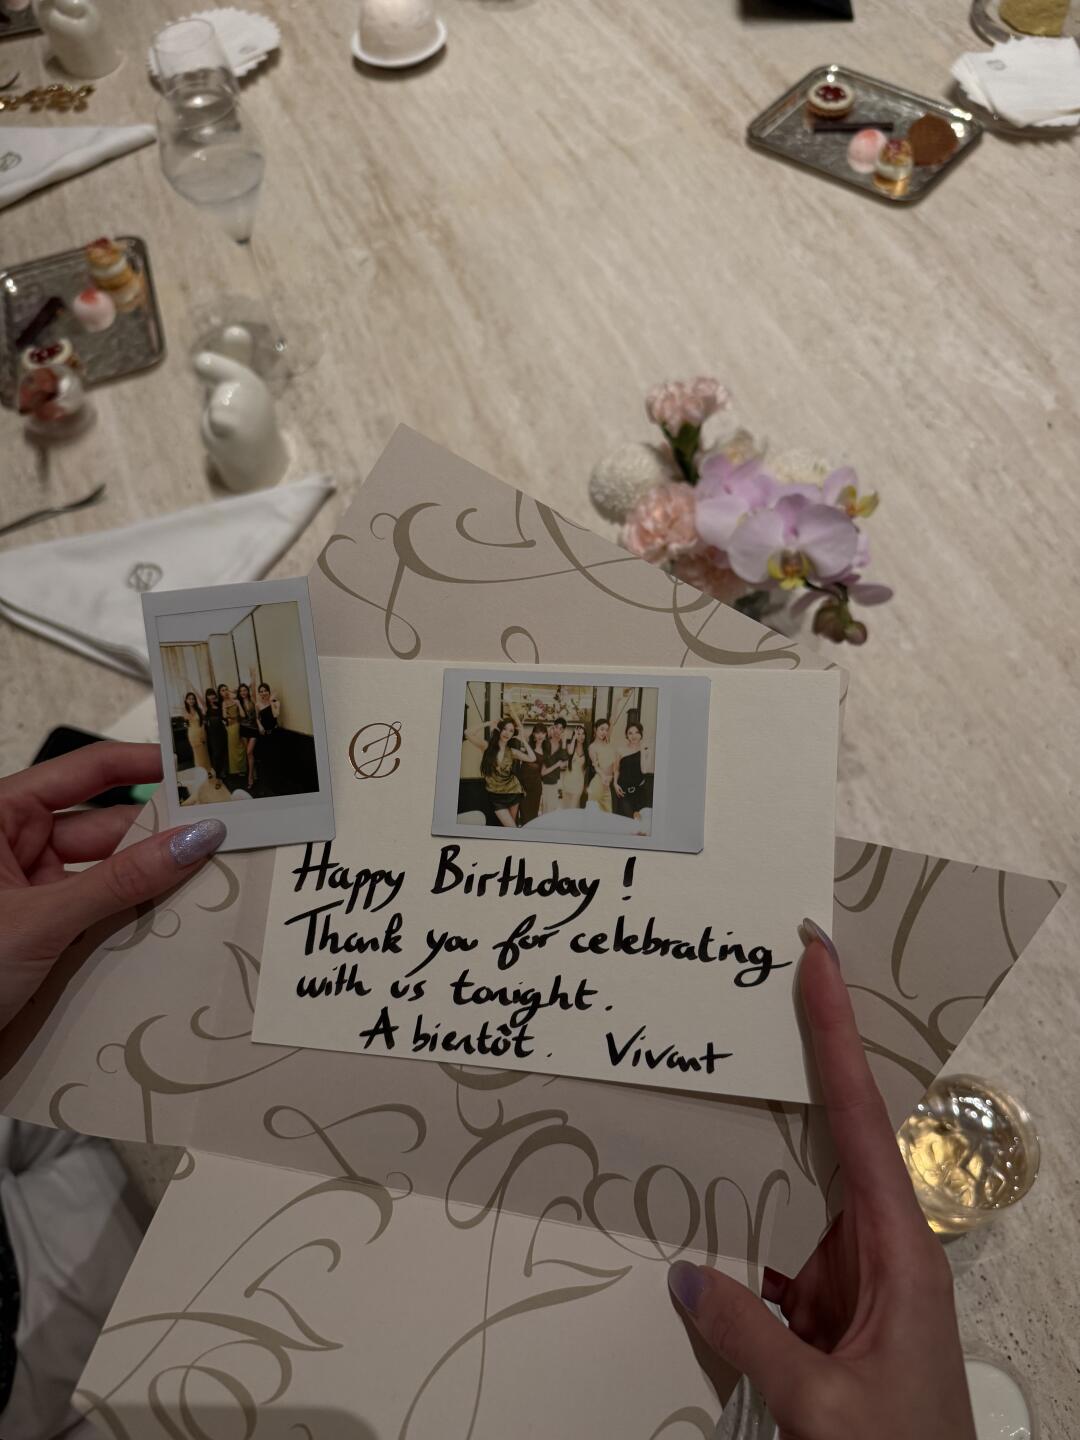 Happy Birthday !
Thank you for celebrating
with us tonight.
A bientôt. Vivant